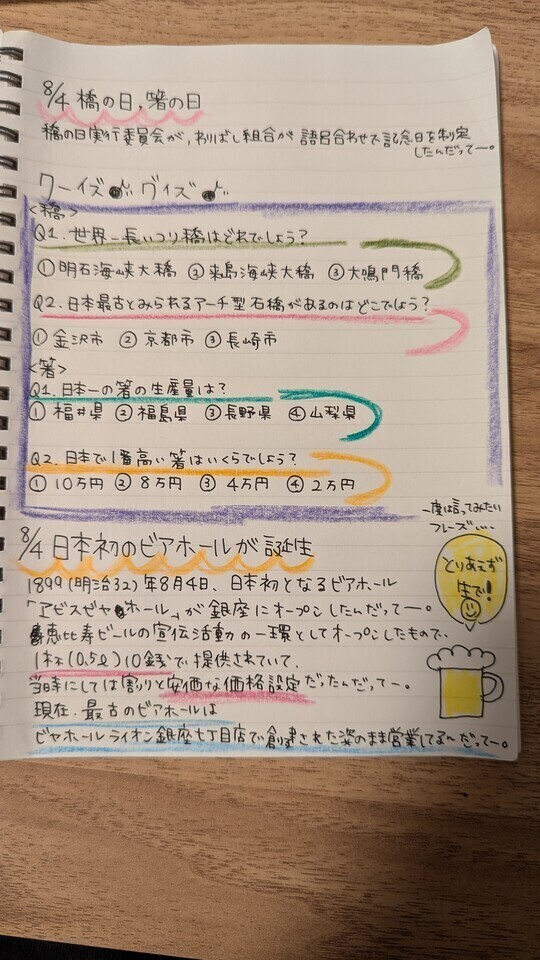 8/4 橋の日,箸の日
橋の日実行委員会が,わりばし組合が 語呂合わせで記念日を制定
したんだってー。
クーイズ♪ ヴィズ♪
<橋>
Q1.世界一長いつり橋はどれでしょう?
①明石海峡大橋 ②来島海峡大橋 ③大鳴門橋
Q2.日本最古とみられるアーチ型石橋があるのはどこでしょう?
①金沢市 ②京都市 ③長崎市
<箸>
Q1.日本一の箸の生産量は?
①福井県 ②福島県 ③長野県 ④山梨県
Q2.日本で1番高い箸はいくらでしょう?
①10万円 ②8万円 ③4万円 ④2万円
一度は言ってみたい
フレーズ...
とりあえず
生で!
8/4 日本初のビアホールが誕生
1899(明治32)年8月4日、日本初となるビアホール
「アビスビヤホール」が銀座にオープンしたんだってー。
恵比寿ビールの宣伝活動の一環としてオープンしたもので、
1杯(0.5ℓ)10銭で提供されていて、
当時にしては割りと安価な価格設定だったんだってー。
現在、最古のビアホールは
ビヤホールライオン銀座七丁目店で創建された姿のまま営業してるんだってー。